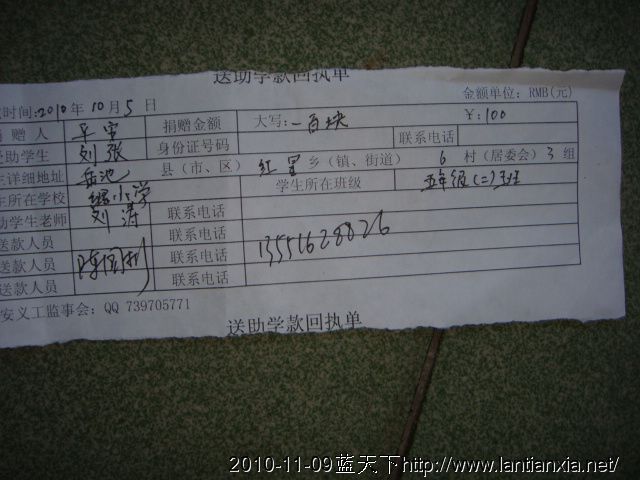 送助学款回执单
时间:2010年10月5日
金额单位: RMB(元)
赠人 平安 捐赠金额 大写:一百块 ¥:100
助学生 刘张 身份证号码 联系电话
详细地址 岳池 县(市、区) 红星 乡(镇、街道) 6 村(居委会) 3 组
生所在学校 小学 学生所在班级 五年级(二)班
助学生老师 刘涛 联系电话
送款人员 联系电话
送款人员 联系电话 13551628826
送款人员 联系电话
安义工监事会: QQ 739705771
送助学款回执单
2010-11-09蓝天下http://www.lantianxia.net/